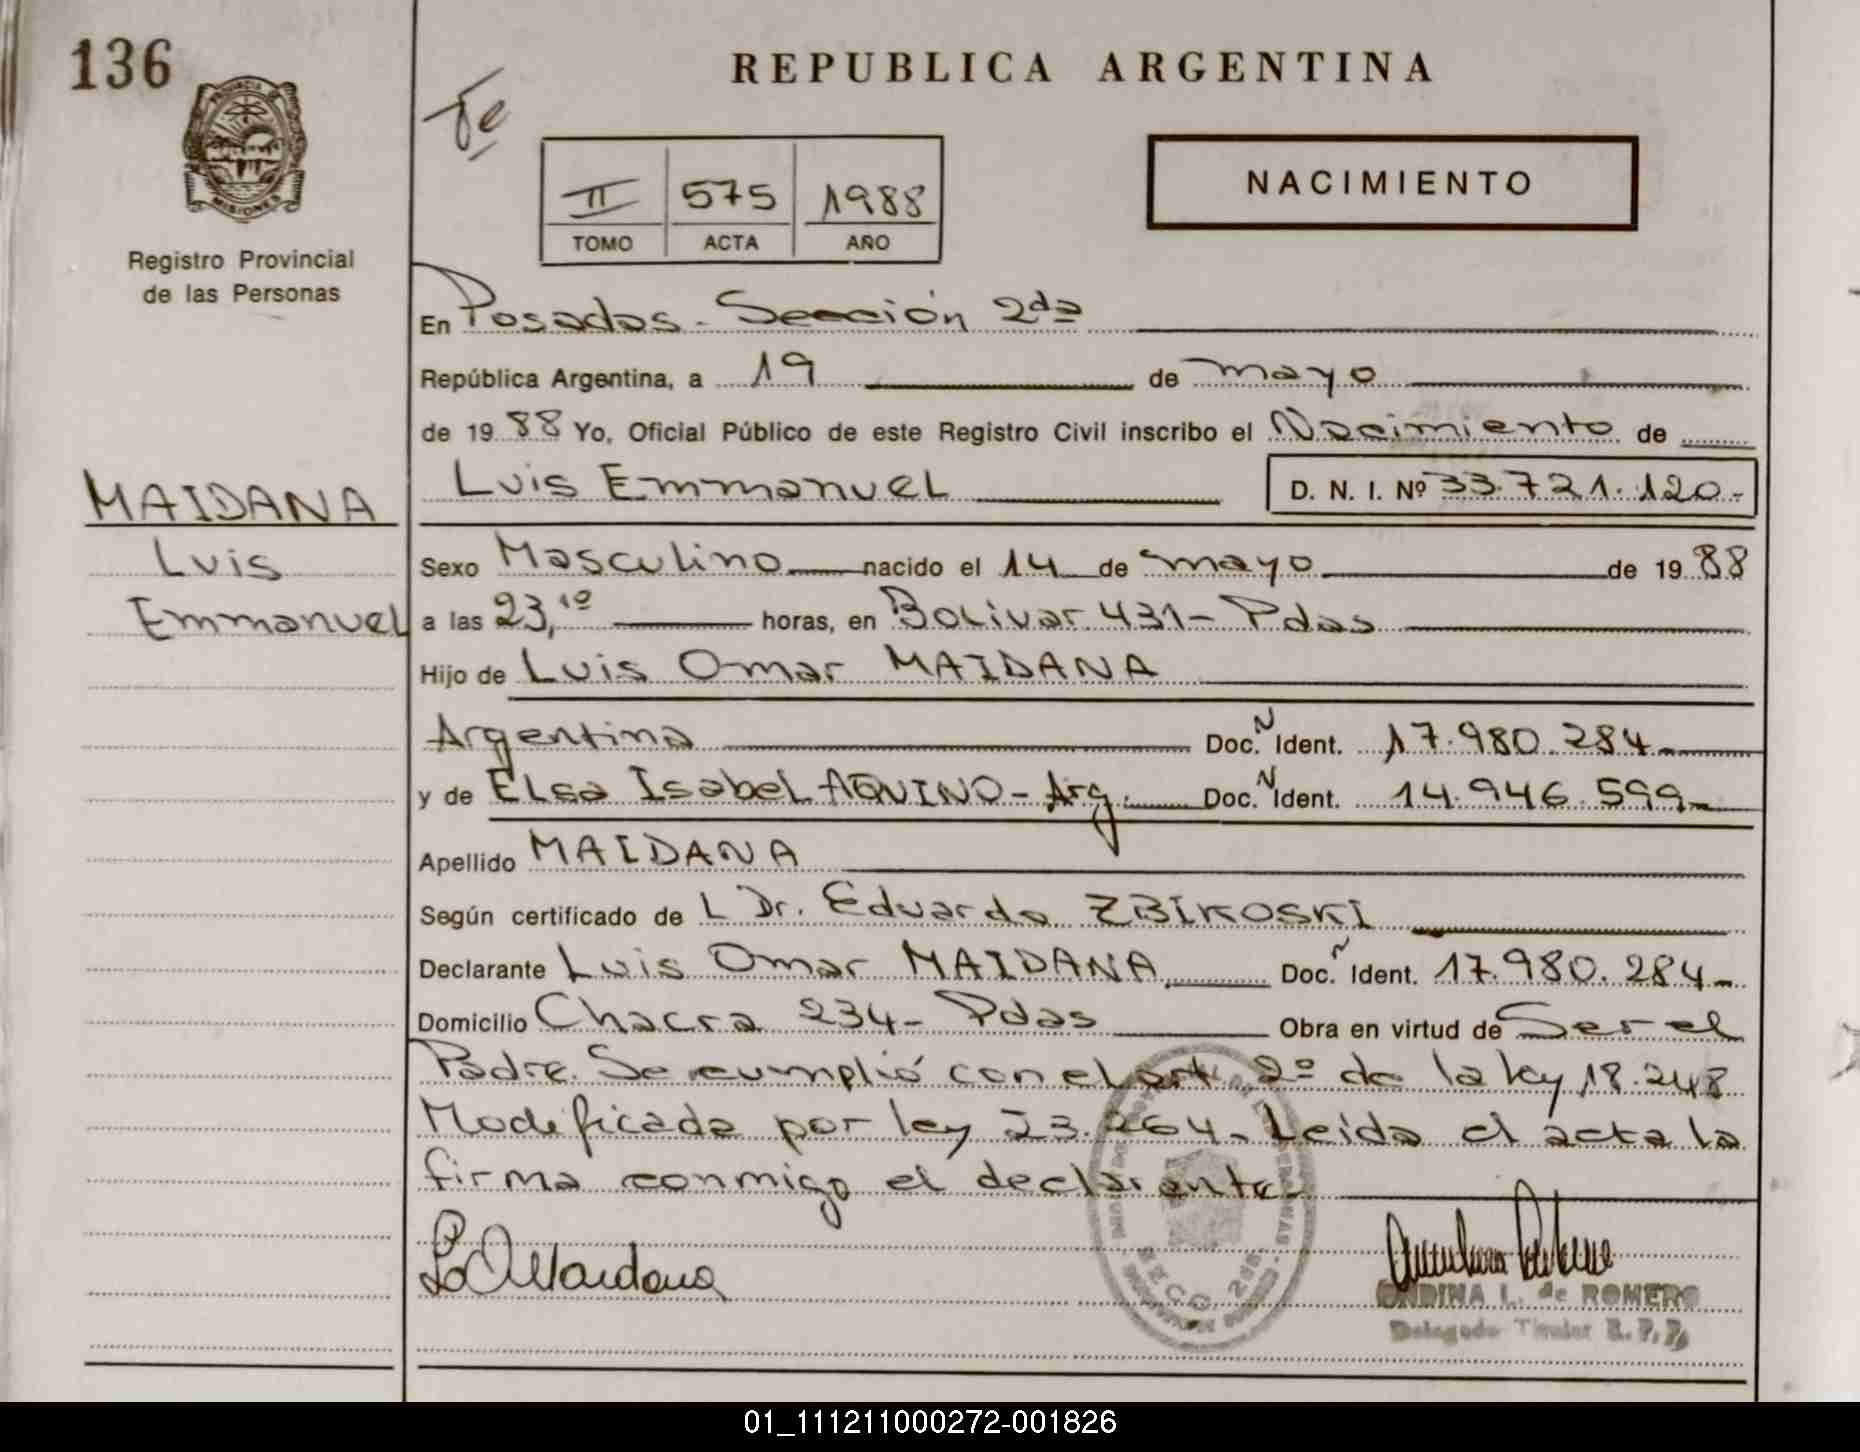 136
REPUBLICA ARGENTINA
PROVINCIA DE
MISIONES
Registro Provincial
de las Personas
II 575 1988
TOMO ACTA AÑO
NACIMIENTO
En Posadas. Sección 2da
República Argentina, a 19 de mayo
de 1988 Yo, Oficial Público de este Registro Civil inscribo el Nacimiento de
MAIDANA
Luis
Emmanuel
Luis Emmanuel D. N. I. Nº 33.721.120.-
Sexo Masculino nacido el 14 de mayo de 1988
a las 23,10 horas, en Bolivar 431- Pdas
Hijo de Luis Omar MAIDANA
Argentina Doc. N Ident. 17.980.284-
y de Elsa Isabel AQUINO- Arg. Doc. N Ident. 14.946.599-
Apellido MAIDANA
Según certificado de L Dr. Eduardo ZBIKOSKI
Declarante Luis Omar MAIDANA Doc. N Ident. 17.980.284-
Domicilio Chacra 234- Pdas Obra en virtud de Ser el
Padre. Se cumplió con el art 2º de la ley 18.248
Modificada por ley 23.264. Leída el acta la
firma conmigo el declarante.
L O Maidana
ONDINA L. de ROMERO
Delegado Titular R. P. P.
01_111211000272-001826